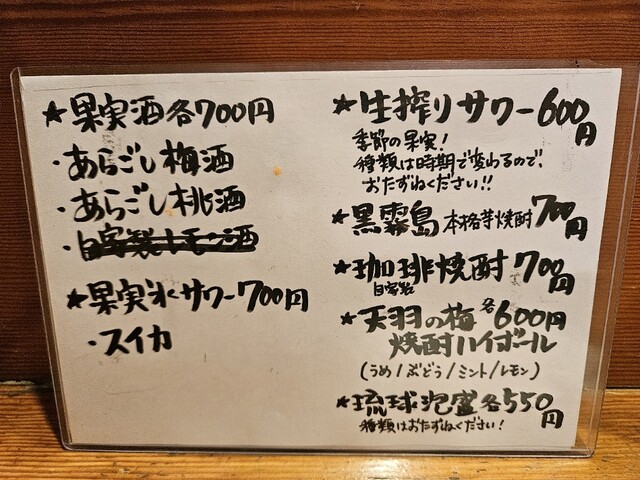 ★果実酒各700円
・あらごし梅酒
・あらごし桃酒
・自家製レモン酒
★果実氷サワー700円
・スイカ
★生搾りサワー600円
季節の果実!
種類は時期で変わるので、
おたずねください!!
★黒霧島 本格芋焼酎 700円
★珈琲焼酎700円
自家製
★天羽の梅 各600円
焼酎ハイボール
(うめ/ぶどう/ミント/レモン)
★琉球泡盛各550円
種類はおたずねください!